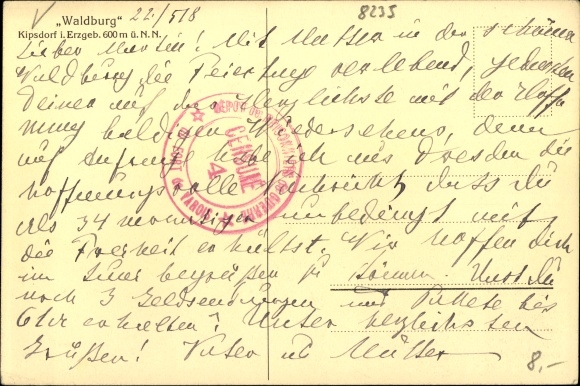 „Waldburg" 22/5 18 8235
Kipsdorf i. Erzgeb. 600 m ü. N.N.
Lieber Martin! Mit Mutter in der schönen
Waldburg die Feiertage verlebend, gedenken
Deiner auf das herzlichste mit der Hoff-
nung baldigen Wiedersehens, denn
auf Anfrage habe ich aus Dresden die
hoffnungsvolle Nachricht, dass Du
als 34 monatiger unbedingt mit
die Freiheit erhältst. Wir hoffen Dich
im Juni begrüßen zu können. Hast Du
noch 3 Geldsendungen und Pakete bis
erhalten? Unser herzlichsten
Grüßen! Vater und Mutter
8,-
DEPOT DE PRISONNIERS DE GUERRE
CENSURÉ
4